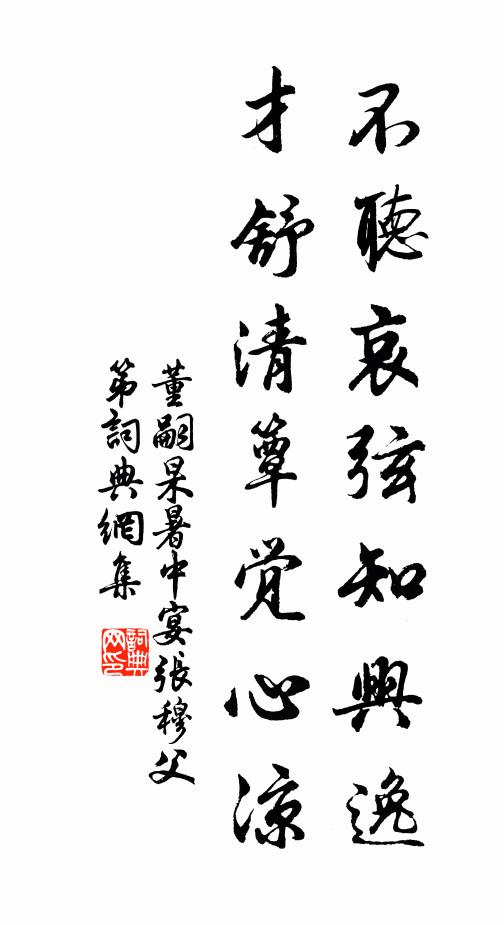 不聽哀弦知興逸
才舒清簟觉心涼
董嗣杲暑中宴張穆父
第詞典網集
詞典网印